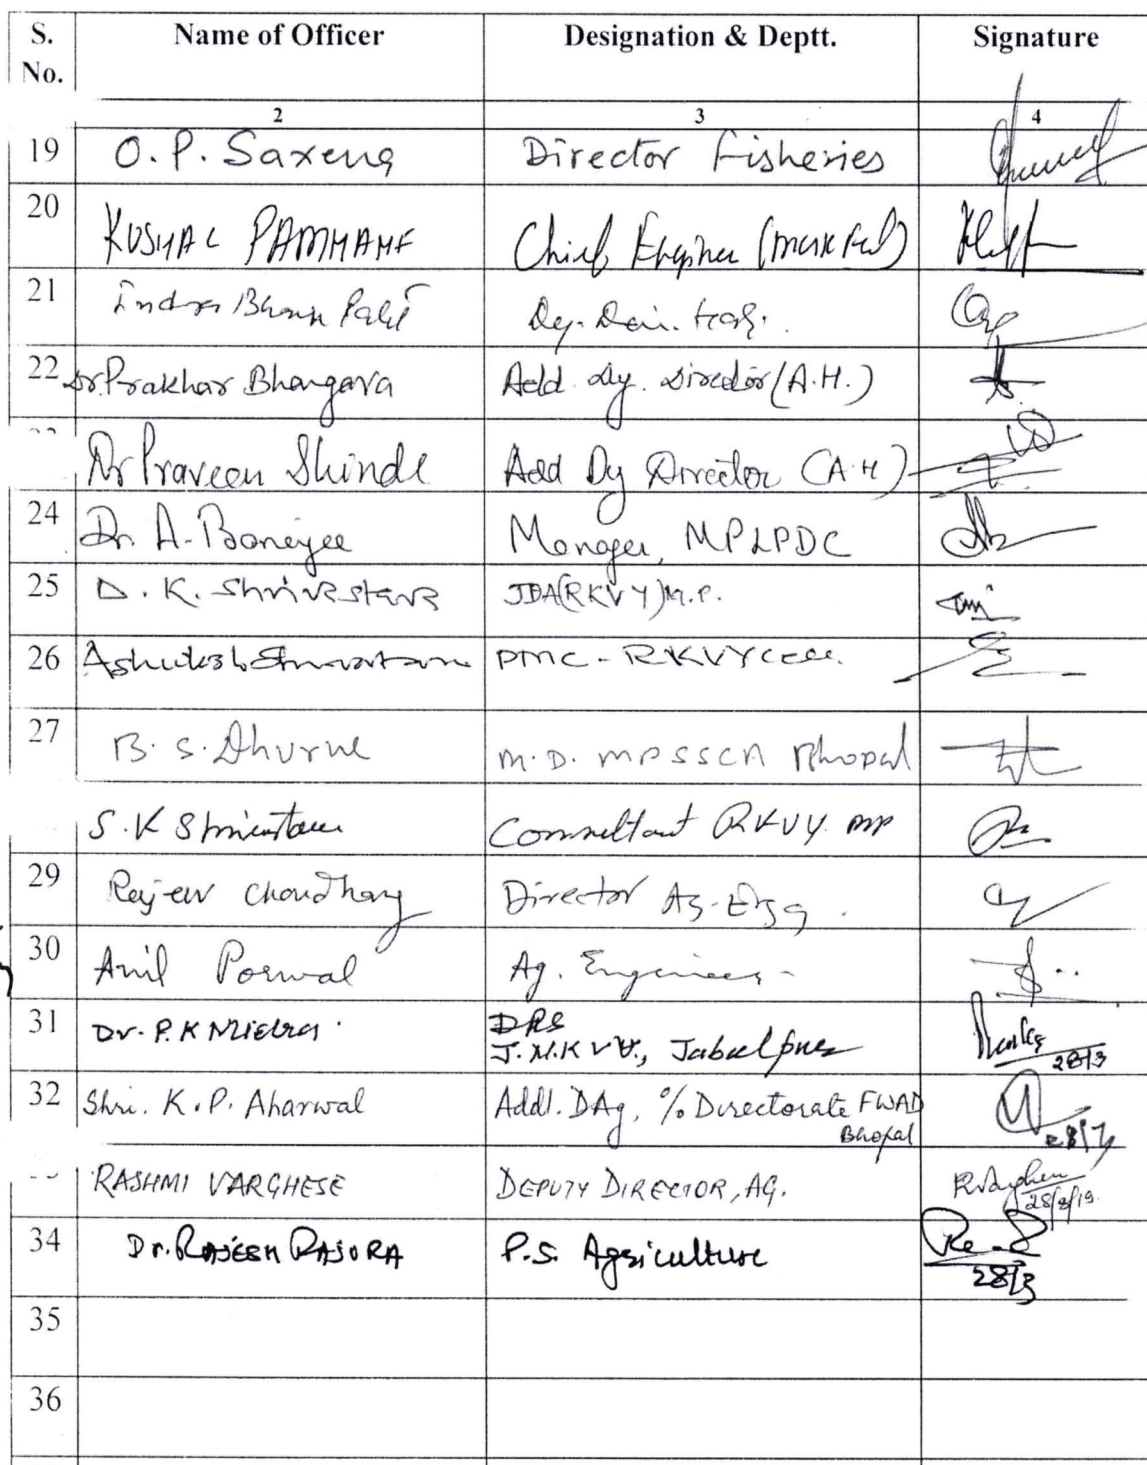 S. No. Name of Officer Designation & Deptt. Signature
2 3 4
19 O. P. Saxena Director Fisheries
20 KUSHAL Chief Engineer
21 Indra Bhan Patil Dy. Dir.
22 Dr. Prakhar Bhargava Add. Dy. Director (A.H.)
Dr Praveen Shinde Add Dy Director (A.H)
24 Dr. A. Banerjee Manager, MPLPDC
25 D. K. Shrivastava JDA(RKVY)M.P.
26 Ashutosh PMC - RKVY Cell.
27 B. S. Dhurve M.D. MPSSCA Bhopal
S. K Shrivastava Consultant RKVY MP
29 Rajeev Choudhary Director Ag. Engg.
30 Anil Porwal Ag. Engineer
31 Dr. P. K Mishra DRS
J.N.K.V.V., Jabalpur
28/3
32 Shri. K. P. Aharwal Addl. DAg, % Directorate FWAD
Bhopal
RASHMI VARGHESE DEPUTY DIRECTOR, AG.
28/3/19
34 Dr. RAJESH RAJORA P.S. Agriculture
28/3
35
36